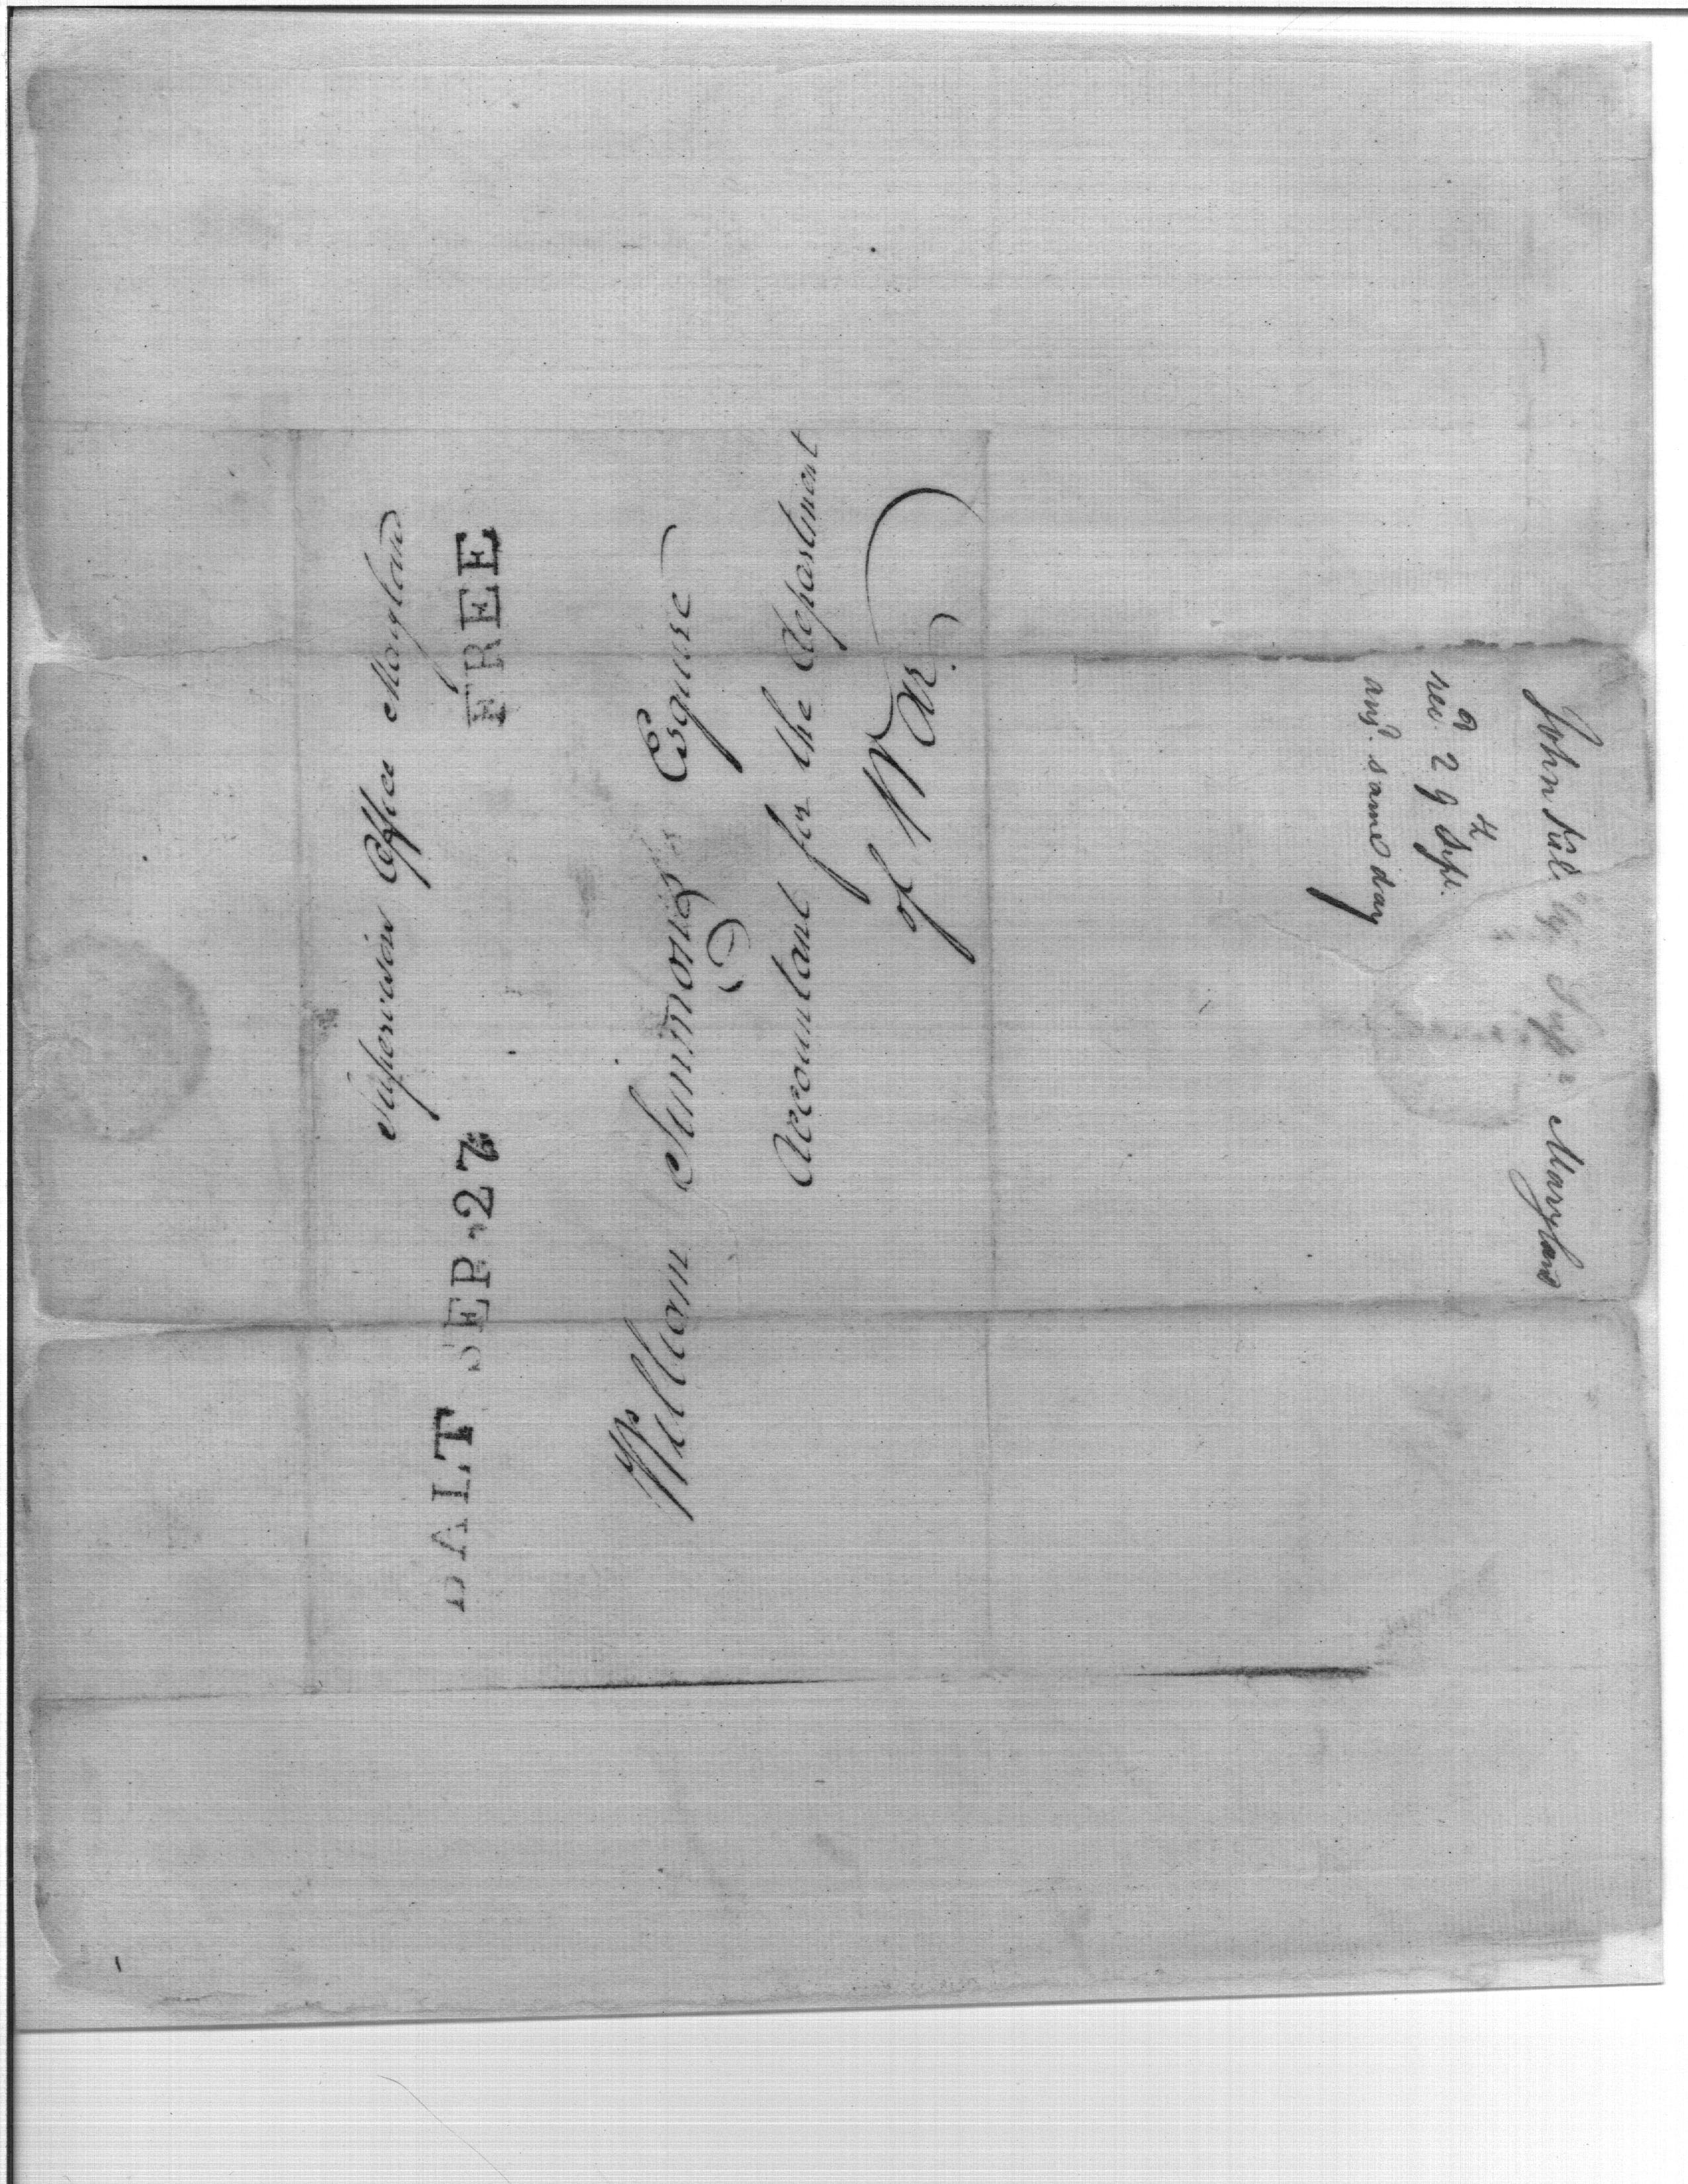 Supervisors Office Maryland
BALT SEP. 27 FREE
William Simmons Esquire
Accountant for the department
of War.
John Kilty Supr. Maryland
recd 29th Sept.
ansd. same day